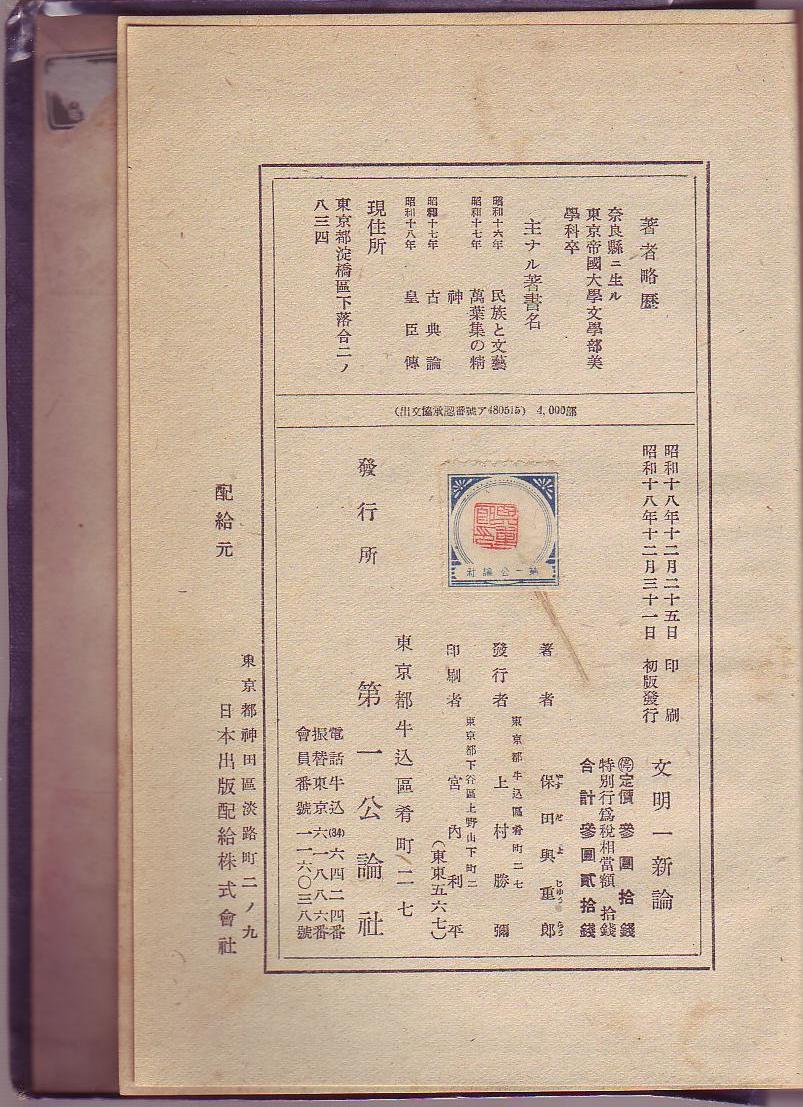 著者略歷
奈良縣ニ生ル
東京帝國大學文學部美
學科卒
主ナル著書名
昭和十六年 民族と文藝
昭和十七年 萬葉集の精
神
昭和十七年 古典論
昭和十八年 皇臣傳
現住所
東京都淀橋區下落合二ノ
八三四
(出文協承認番號ア480515) 4,000部
昭和十八年十二月二十五日 印刷
昭和十八年十二月三十一日 初版發行
文明一新論
㊞定價 參圓拾錢
特別行爲稅相當額 拾錢
合計 參圓貳拾錢
著者 保田與重郎
やすだよじゅうろう
東京都牛込區肴町二七
發行者 上村勝彌
東京都下谷區上野山下町二
印刷者 宮內利平
(東東五六七)
第一公論社
東京都牛込區肴町二七
發行所 第一公論社
電話牛込(34)六四二四番
振替東京六一八八六番
會員番號一一六〇三八號
配給元
東京都神田區淡路町二ノ九
日本出版配給株式會社